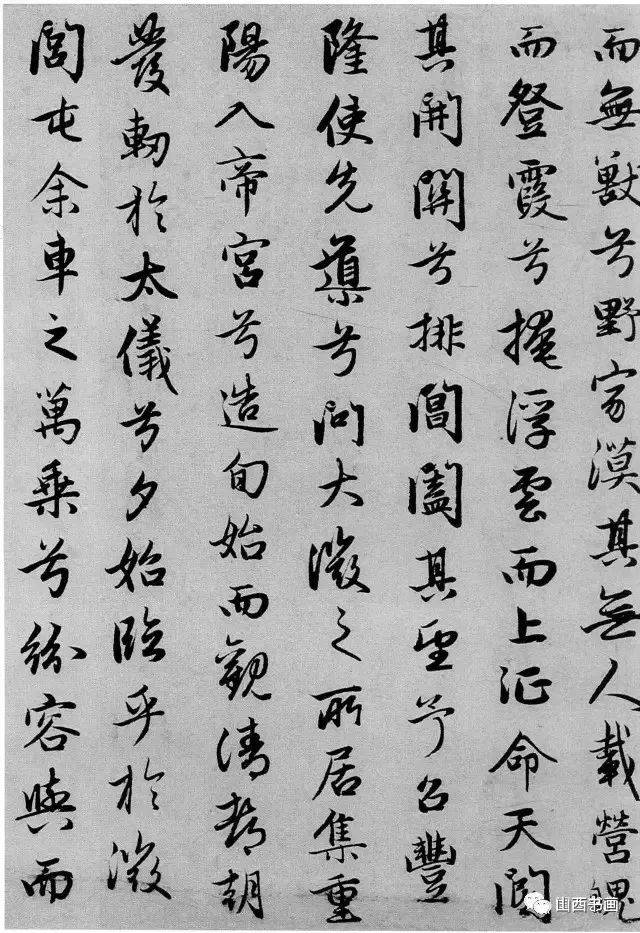 而無獸兮野寂漠其無人載營魄
而登霞兮掩浮雲而上征命天閽
其開關兮排閶闔其望予召豐
隆使先導兮問大微之所居集重
陽入帝宮兮造旬始而觀清都朝
發軔於太儀兮夕始臨乎於微
閭屯余車之萬乘兮紛容與而
山西书画